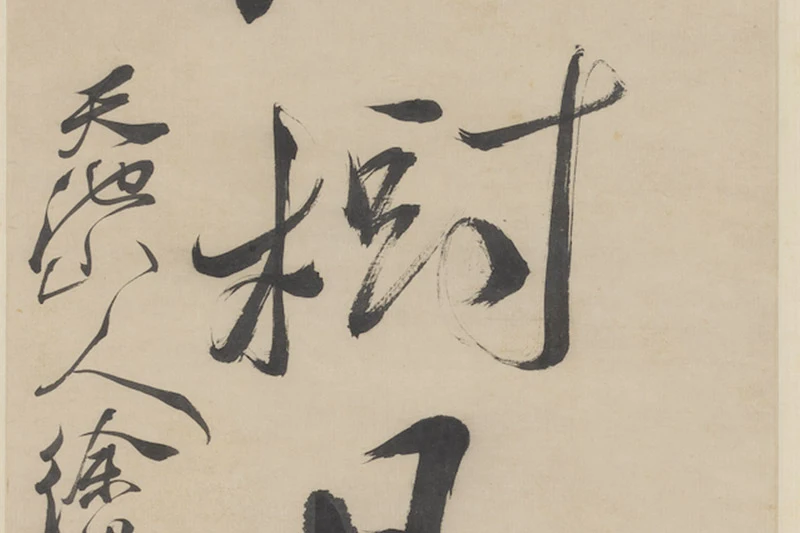 樹
天池山人徐